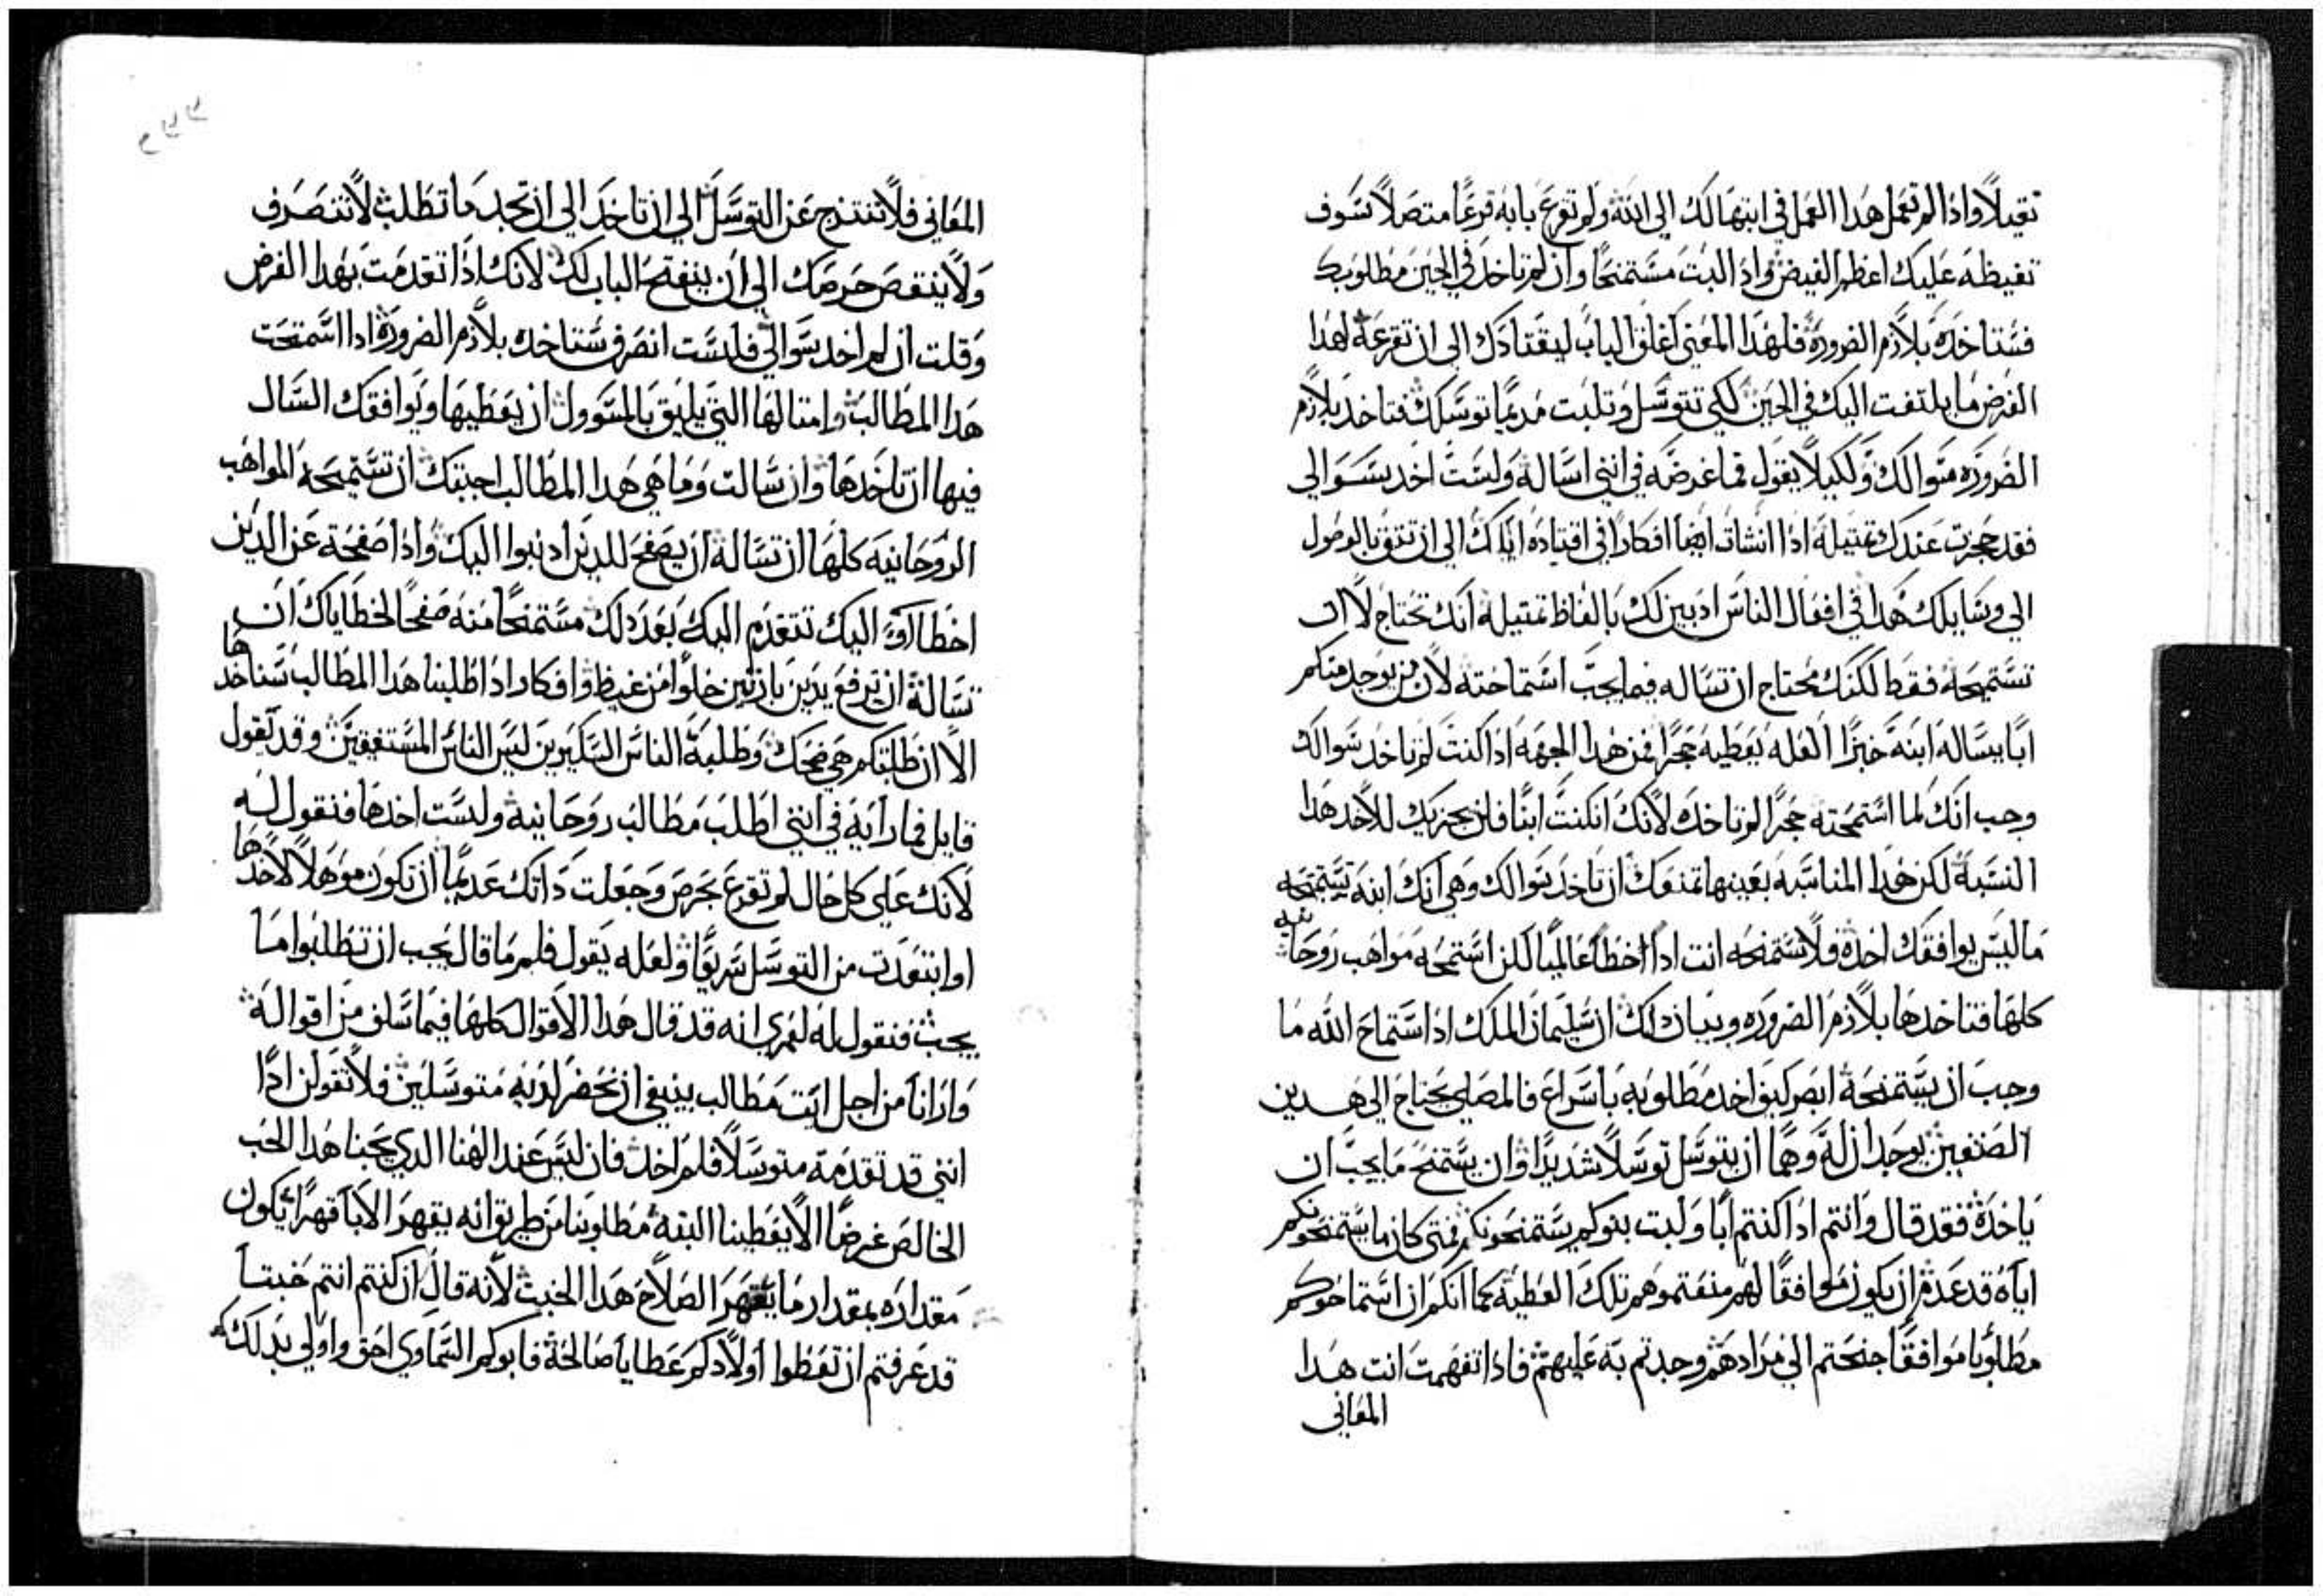 ثقيلاً واذا لم تعمل هذا العمل في ابتهالك الى ابنه ولم تقرع بابه قرعًا متصلاً سوف
تغيظه عليك اعظم الغيض واذ البث مستمنحًا وان لم تاخذ في الحين مطلوبك
فستاخذه بلازم الضرورة فلهذا المعنى اغلق الباب ليقتادك الى ان تقرعه لهذا
الغرض ما يلتفت اليك في الحين لكي تتوسل وتلبث مديمًا توسلك فتاخذ بلازم
الضروره سوالك ولكيلا يقول فما غرضه في انني اساله ولست اخذ سوالي
فقد حجزت عندك تمثيله اذا انشات ايضا افكارًا في اقتياده اياك الى ان تثق بالوصول
الي وسايلك هذا في افعال الناس اذ بين لك بالفاظ تمثيله انك تحتاج لا ان
تستميحه فقط لكنك محتاج ان تساله فيما يجب استماحته لان من يوجد منكم
ابًا يساله ابنه خبزًا العله يعطيه حجرًا فمن هذا الجهه اذا كنت لم تاخذ سوالك
وجب انك لما استمحته حجرًا لم تاخذه لانك ان كنت ابنًا فلن يجزيك للاخد هذا
النسبة لكن هذا المناسبه بعينها تمنعك ان تاخذ سوالك وهي انك ابنه تستمنحه
ما ليس يوافقك اخذه ولا تستمنحه انت اذًا اخطا عالميًا لكن استمحه مواهب روحانيه
كلها فتاخذها بلازم الضروره وبيان ذلك ان سليمان الملك اذ استماح الله ما
وجب ان يستمنحه ابصر كيف اخذ مطلوبه باسراع فالمصلي يحتاج الى هدين
الصنفين يوجدان له وهما ان يتوسل توسلاً شديدًا وان يستمنح ما يجب ان
ياخذه فقد قال وانتم اذا كنتم ابا ولبث بنوكم يستمنحونكم فمتى كان ما يستمنحونكم
اياه قد عدم ان يكون موافقًا لهم منعتموهم تلك العطية كما انكم ان استماحوكم
مطلوبا موافقًا جنحتم الى مرادهم وجدتم به عليهم فاذا تفهمت انت هذا
المعاني
المعاني فلا تنتزح عن التوسل الى ان تاخذ الى ان تجد ما تطلب لا تنصرف
ولا ينتقص حرصك الى ان ينفتح الباب لك لانك اذا تقدمت بهذا الغرض
وقلت ان لم اخد سوالي فلست انصرف ستاخذ بلازم الضرورة اذا استمحت
هذا المطالب وامثالها التي يليق بالمسوول ان يعطيها ويوافقك السال
فيها ان تاخذها وان سالت وما هي هذا المطالب اجبتك ان تستميحه المواهب
الروحانيه كلها ان تساله ان يصفح للدين ادنبوا اليك واذا صفحة عن الدين
اخطاوا اليك تتقدم اليه بعد ذلك مستمنحًا منه صفحًا لخطاياك ان
تساله ان ترفع يدين بارتين خلوًا من غيظ وافكار اذا طلبنا هذا المطالب سناخدها
الا ان طلبتكم هي ضحك وطلبة الناس السكيرين ليس الناس المستفيقين وقد يقول
قايل فما رايه في انني اطلب مطالب روحانية ولست اخدها فنقول له
لانك على كل حال لم تقرع بحرص وجعلت ذاتك عديمًا ان تكون موهلاً لاخدها
او ابتعدت من التوسل سريعًا ولعله يقول فلم ما قال يجب ان تطلبوا ما
يجب فنقول له لعمري انه قد قال هذا الاقوال كلها فيما سلف من اقواله
وارانا من اجل ايت مطالب ينبغي ان نحضر لديه متوسلين فلا تقولن اذًا
انني قد تقدمة متوسلاً فلم اخذ فان ليس عند الهنا الذي يحبنا هذا الحب
الخالص غرضًا الا يعطينا البتة مطلوبنا من طريق انه يقهر الابا قهرًا يكون
مقداره بمقدار ما يقهر الصلاح هذا الخبث لانه قال ان كنتم انتم خبثا
قد عرفتم ان تعطوا اولادكم عطايا صالحة فابوكم السماوي احق واولى بذلك